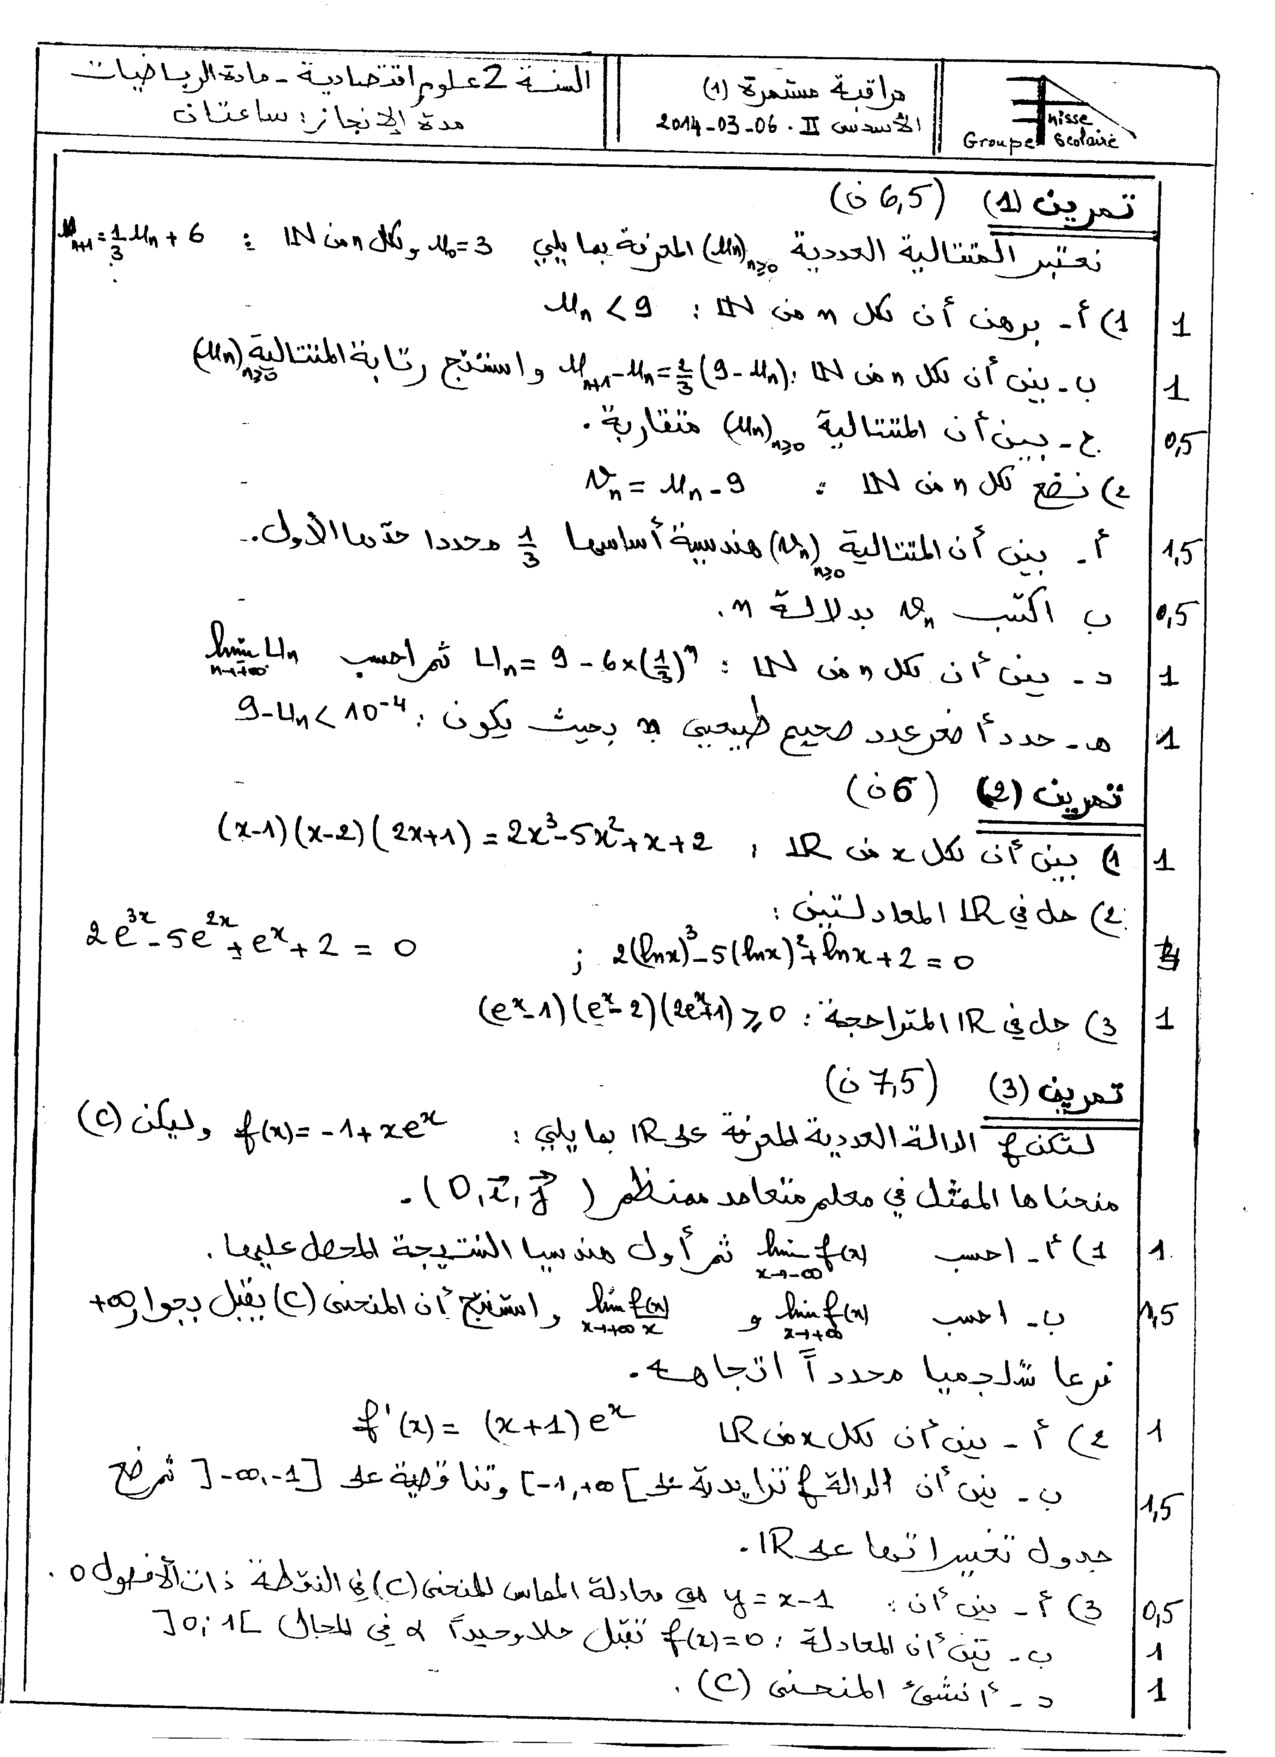 السنة 2 علوم اقتصادية - مادة الرياضيات
مدة الإنجاز : ساعتان
مراقبة مستمرة (1)
الأسدس II . 06-03-2014
nisse
Groupe Scolaire
تمرين (1) (6,5 ن)
نعتبر المتتالية العددية (un)n≥0 المعرفة بما يلي u0 = 3 ولكل n من IN : un+1 = 1/3 un + 6
1) أ - برهن أن لكل n من IN : un < 9 1
ب - بين أن لكل n من IN : un+1 - un = 2/3 (9 - un) واستنتج رتابة المتتالية (un)n≥0 1
ج - بين أن المتتالية (un)n≥0 متقاربة . 0,5
2) نضع لكل n من IN : vn = un - 9
أ - بين أن المتتالية (vn)n≥0 هندسية أساسها 1/3 محددا حدها الأول . 1,5
ب اكتب vn بدلالة n . 0,5
د - بين أن لكل n من IN : Un = 9 - 6×(1/3)^n ثم احسب lim Un n→+∞ 1
هـ - حدد أصغر عدد صحيح طبيعي n بحيث يكون : 9 - Un < 10^-4 1
تمرين (2) (6 ن)
1) بين أن لكل x من IR : (x-1)(x-2)(2x+1) = 2x³ - 5x² + x + 2 1
2) حل في IR المعادلتين :
2(lnx)³ - 5(lnx)² + lnx + 2 = 0 ; 2e^3x - 5e^2x + e^x + 2 = 0
3) حل في IR المتراجحة : (e^x - 1)(e^x - 2)(2e^x + 1) ≥ 0 1
تمرين (3) (7,5 ن)
لتكن f الدالة العددية المعرفة على IR بما يلي : f(x) = -1 + xe^x وليكن (C)
منحناها الممثل في معلم متعامد ممنظم (O, i⃗, j⃗) .
1) أ - احسب lim f(x) x→-∞ ثم أول هندسيا النتيجة المحصل عليها . 1
ب - احسب lim f(x) x→+∞ و lim f(x)/x x→+∞ واستنتج أن المنحنى (C) يقبل بجوار +∞ 1,5
فرعا شلجميا محدداً اتجاهه .
2) أ - بين أن لكل x من IR f'(x) = (x+1)e^x 1
ب - بين أن الدالة f تزايدية على [-1,+∞[ وتناقصية على ]-∞,-1] ثم ضع 1,5
جدول تغيراتها على IR .
3) أ - بين أن : y = x-1 هي معادلة المماس للمنحنى (C) في النقطة ذات الأفصول 0 . 0,5
ب - بين أن المعادلة : f(x) = 0 تقبل حلا وحيداً α في المجال ]0;1[ 1
د - أنشئ المنحنى (C) . 1